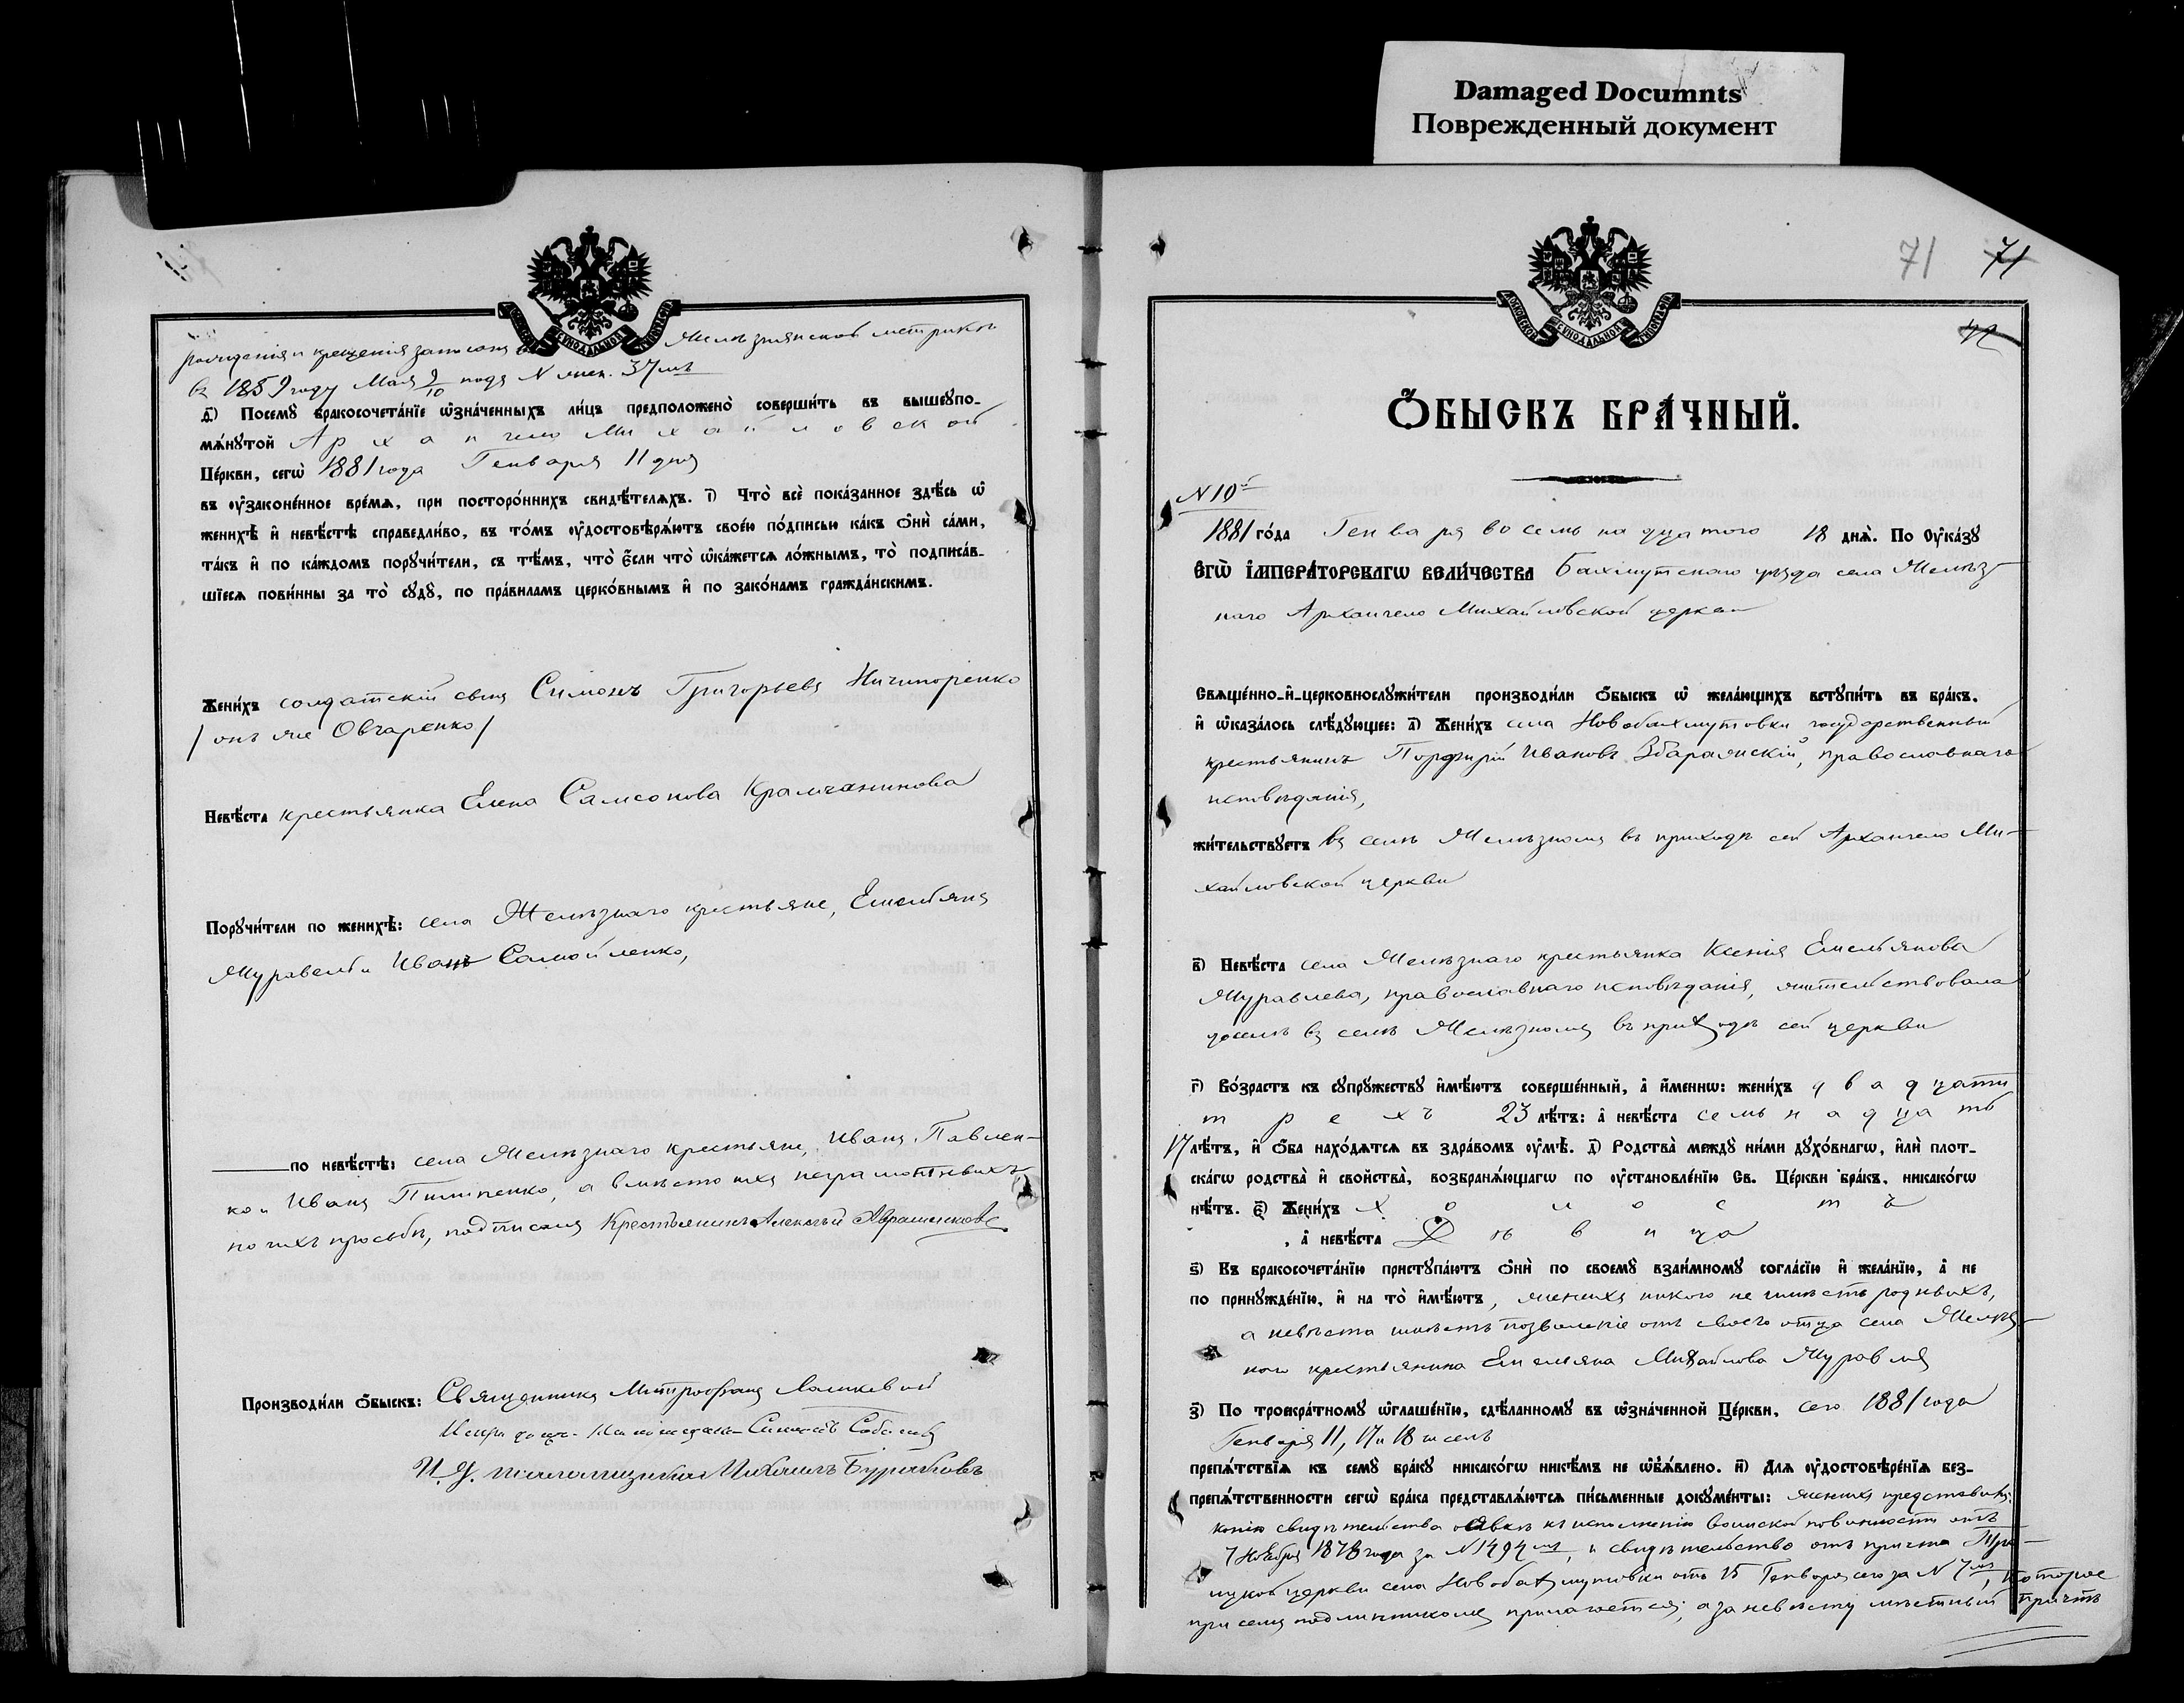 Damaged Documnts
Поврежденный документ
МОСКОВСКОЙ СѴНОДАЛЬНОЙ ТИПОГРАФІИ
рожденія и крещенія записана въ Желѣзнянской метрикѣ
въ 1859 году Мая 9/10 подъ N женс. 37мъ
д҃) Посемꙋ̀ бракосочета́нїе ѡ҆зна́ченныхъ ли́цъ предположено̀ соверши́ть въ вышеꙋпо-
мѧ́нꙋтой Архангело Михайловской
Це́ркви, сегѡ̀ 1881 года Генваря 11 дня
въ ᲂу҆законе́нное вре́мѧ, при посторо́ннихъ свидѣ́телѧхъ. і҃) Что̀ всѐ пока́занное здѣ́сь ѡ҆
женихѣ̀ и҆ невѣ́стѣ справедли́во, въ то́мъ ᲂу҆достовѣрѧ́ютъ свое́ю по́дписью ка́къ ѻ҆нѝ са́ми,
та́къ и҆ по ка́ждомъ порꙋчи́тели, съ тѣ́мъ, что̀ є҆́сли что̀ ѡ҆ка́жетсѧ ло́жнымъ, то̀ подписа́в-
шїесѧ пови́нны за то̀ сꙋдꙋ̀, по пра́виламъ церко́внымъ и҆ по зако́намъ гражда́нскимъ.
Жени́хъ солдатскій сынъ Симонъ Григорьевъ Ничипоренко
/онъ же Овчаренко/
Невѣ́ста крестьянка Елена Самсонова Крамчанинова
Порꙋчи́тели по женихѣ̀: села Желѣзнаго крестьяне, Емельянъ
Журавель и Иванъ Самойленко,
по невѣ́стѣ: села Желѣзнаго крестьяне, Иванъ Павлен-
ко и Иванъ Пилипенко, а вмѣсто ихъ неграмотныхъ
по ихъ просьбѣ, подписалъ Крестьянинъ Алексѣй Аврашенковъ
Производи́ли ѻ҆́быскъ: Священникъ Митрофанъ
И. д. псаломщика Михаилъ Бураковъ
71 71
МОСКОВСКОЙ СѴНОДАЛЬНОЙ ТИПОГРАФІИ
Ѻ҆́БЫСКЪ БРА́ЧНЫЙ.
N 10й
1881 го́да Генваря восемьнадцатого 18 днѧ̀. По Оу҆ка́зꙋ
Є҆гѡ̀ И҆мпера́торскагѡ Вели́чества Бахмутскаго уѣзда села Желѣз-
наго Архангело Михайловской церкви
Свѧще́нно-и҆-церковнослꙋжи́тели производи́ли ѻ҆́быскъ ѡ҆ жела́ющихъ встꙋпи́ть въ бра́къ.
и҆ ѡ҆каза́лось слѣ́дꙋющее: а҃) Жени́хъ села Новобахмутовки государственный
крестьянинъ Порфирій Ивановъ Збаражскій, православнаго
исповѣданія,
жи́тельствꙋетъ въ селѣ Желѣзномъ въ приходѣ сей Архангело Ми-
хайловской церкви
в҃) Невѣ́ста села Желѣзнаго крестьянка Ксенія Емельянова
Журавлева, православнаго исповѣданія, жительствовала
доселѣ въ селѣ Желѣзномъ въ приходѣ сей церкви
г҃) Во́зрастъ къ сꙋпрꙋ́жествꙋ и҆мѣ́ютъ соверше́нный, а҆ и҆́меннѡ: жени́хъ двадцати
трехъ 23 лѣ́тъ: а҆ невѣ́ста семьнадцать
17 лѣ́тъ, и҆ ѻ҆́ба нахо́дѧтсѧ въ здра́вомъ ᲂу҆мѣ̀. д҃) Родства̀ междꙋ ни́ми дꙋхо́внагѡ, и҆лѝ плот-
ска́гѡ родства̀ и҆ свойства̀, возбранѧ́ющагѡ по ᲂу҆становле́нїю Св. Це́ркви бра́къ, никако́гѡ
нѣ́тъ. є҃) Жени́хъ холостъ
, а҆ невѣ́ста Дѣвица
ѕ҃) Къ бракосочета́нїю пристꙋпа́ютъ ѻ҆нѝ по своемꙋ̀ взаи́мномꙋ согла́сїю и҆ жела́нїю, а҆ не
по принꙋжде́нїю, и҆ на то̀ и҆мѣ́ютъ, женихъ никого не имѣетъ родныхъ,
а невѣста имѣетъ позволеніе отъ своего отца села Желѣз-
наго крестьянина Емельяна Михайлова Журавля
з҃) По троекра́тномꙋ ѡ҆глаше́нїю, сдѣ́ланномꙋ въ ѡ҆зна́ченной Це́ркви, сего 1881 года
Генваря 11, 17 и 18 чиселъ
препѧ́тствїѧ къ семꙋ̀ бра́кꙋ никако́гѡ никѣ́мъ не ѡ҆б̾ѧ́влено. и҃) Длѧ ᲂу҆достовѣре́нїѧ без-
препѧ́тственности сегѡ̀ бра́ка представлѧ́ютсѧ пи́сьменные докꙋме́нты: женихъ представилъ:
копію свидѣтельства о явкѣ къ исполненію воинской повинности отъ
7 Ноября 1878 года за N 1494мъ, и свидѣтельство отъ причта Тро-
ицкой церкви села Новобахмутовки отъ 15 Генваря сего за N 7мъ, которое
при семъ подлинникомъ прилагается; а за невѣсту мѣстный причтъ